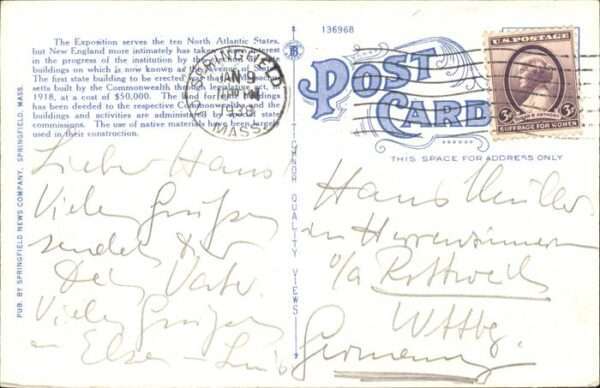 The Exposition serves the ten North Atlantic States,
but New England more intimately has taken
in the progress of the institution by the
buildings on which is now known as
The first state building to be erected
setts built by the Commonwealth through legislative act, in
1918, at a cost of $50,000. The land for the buildings
has been deeded to the respective and the
buildings and activities are administered by state
commissions. The use of native materials have been largely
used in their construction.
136968
JAN 9
1938
MASS.
U.S. POSTAGE
3¢ 3¢
SUSAN B. ANTHONY
SUFFRAGE FOR WOMEN
POST
CARD
THIS SPACE FOR ADDRESS ONLY
PUB. BY SPRINGFIELD NEWS COMPANY, SPRINGFIELD, MASS.
QUALITY VIEWS
Lieber Hans
Viele Grüße
sendet dir
Dein Vater.
Viele Grüße
an Elsa - 
Hans
in Herrenzimmern
o/a Rottweil
Wttbg.
Germany